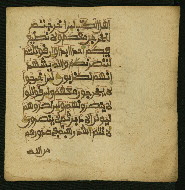 اهل الكتب لئن اخرجتم لنـ
ـخرجن معكم ولا نطيع
فيكم احدا ابدا وان قوتلتم
لننصرنكم والله يشهد
انهم لكذبون لئن اخرجوا
لا يخرجون معهم ولئن قوتلوا
لا ينصرونهم ولئن نصروهم
ليولن الادبر ثم لا ينصرون
لانتم اشد رهبة في صدورهم
من الله